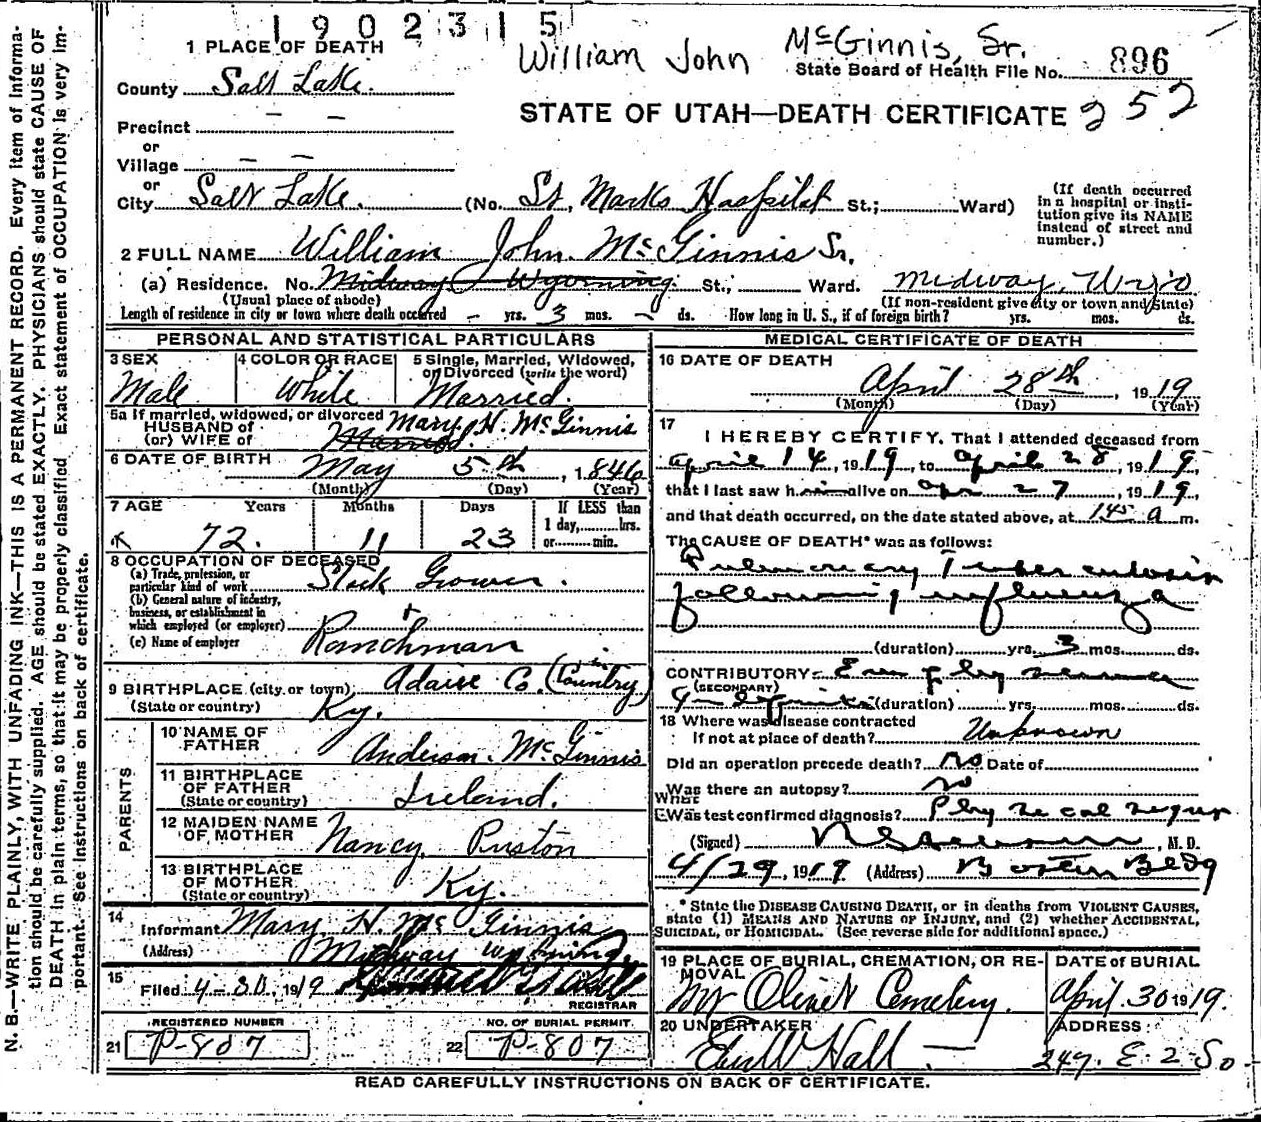 1902315
William John McGinnis, Sr.
1 PLACE OF DEATH
State Board of Health File No. 896
County Salt Lake.
STATE OF UTAH—DEATH CERTIFICATE 252
Precinct — —
or
Village — —
or
City Salt Lake. (No. St. Marks Hospital St.; Ward)
(If death occurred in a hospital or institution give its NAME instead of street and number.)
2 FULL NAME William John McGinnis Sr.
(a) Residence. No. Midway Wyoming. St.; Ward. Midway, Wyo
(Usual place of abode) (If non-resident give city or town and State)
Length of residence in city or town where death occurred - yrs. 3 mos. - ds. How long in U. S., if of foreign birth? yrs. mos. ds.
PERSONAL AND STATISTICAL PARTICULARS
3 SEX Male
4 COLOR OR RACE White
5 Single, Married, Widowed, or Divorced (write the word) Married.
5a If married, widowed, or divorced
HUSBAND of
(or) WIFE of Mary H. McGinnis
Married.
6 DATE OF BIRTH May 5th, 1846
(Month) (Day) (Year)
7 AGE Years Months Days If LESS than 1 day, hrs. or min.
72. 11 23
8 OCCUPATION OF DECEASED
(a) Trade, profession, or particular kind of work Stock Grower.
(b) General nature of industry, business, or establishment in which employed (or employer) +
Ranchman
(c) Name of employer
9 BIRTHPLACE (city or town) Adair Co. (in Country)
(State or country) Ky.
PARENTS
10 NAME OF FATHER Anderson McGinnis
11 BIRTHPLACE OF FATHER (State or country) Ireland.
12 MAIDEN NAME OF MOTHER Nancy
13 BIRTHPLACE OF MOTHER (State or country) Ky.
14
Informant Mary H. McGinnis
(Address) Midway Wyoming
15
Filed 4-30, 1919
REGISTRAR
REGISTERED NUMBER NO. OF BURIAL PERMIT
21 P-807 22 P-807
MEDICAL CERTIFICATE OF DEATH
16 DATE OF DEATH
April 28th, 1919
(Month) (Day) (Year)
17
I HEREBY CERTIFY, That I attended deceased from
April 14, 1919, to April 28, 1919,
that I last saw him alive on Apr 27, 1919,
and that death occurred, on the date stated above, at 145 a m.
The CAUSE OF DEATH* was as follows:
Pulmonary Tuberculosis
following influenza
(duration) yrs. 3 mos. ds.
CONTRIBUTORY
(SECONDARY)
(duration) yrs. mos. ds.
18 Where was disease contracted
If not at place of death? Unknown
Did an operation precede death? No Date of
Was there an autopsy? no
What test confirmed diagnosis?
(Signed) , M. D.
4/29, 1919 (Address) Boston Bldg
* State the DISEASE CAUSING DEATH, or in deaths from VIOLENT CAUSES,
state (1) MEANS AND NATURE OF INJURY, and (2) whether ACCIDENTAL,
SUICIDAL, or HOMICIDAL. (See reverse side for additional space.)
19 PLACE OF BURIAL, CREMATION, OR REMOVAL
Mt Olivet Cemetery.
DATE of BURIAL
April 30 1919.
20 UNDERTAKER
Hall
ADDRESS
247. E. 2 So
READ CAREFULLY INSTRUCTIONS ON BACK OF CERTIFICATE.
N. B.—WRITE PLAINLY, WITH UNFADING INK—THIS IS A PERMANENT RECORD. Every item of information should be carefully supplied. AGE should be stated EXACTLY. PHYSICIANS should state CAUSE OF DEATH in plain terms, so that it may be properly classified. Exact statement of OCCUPATION is very important. See instructions on back of certificate.